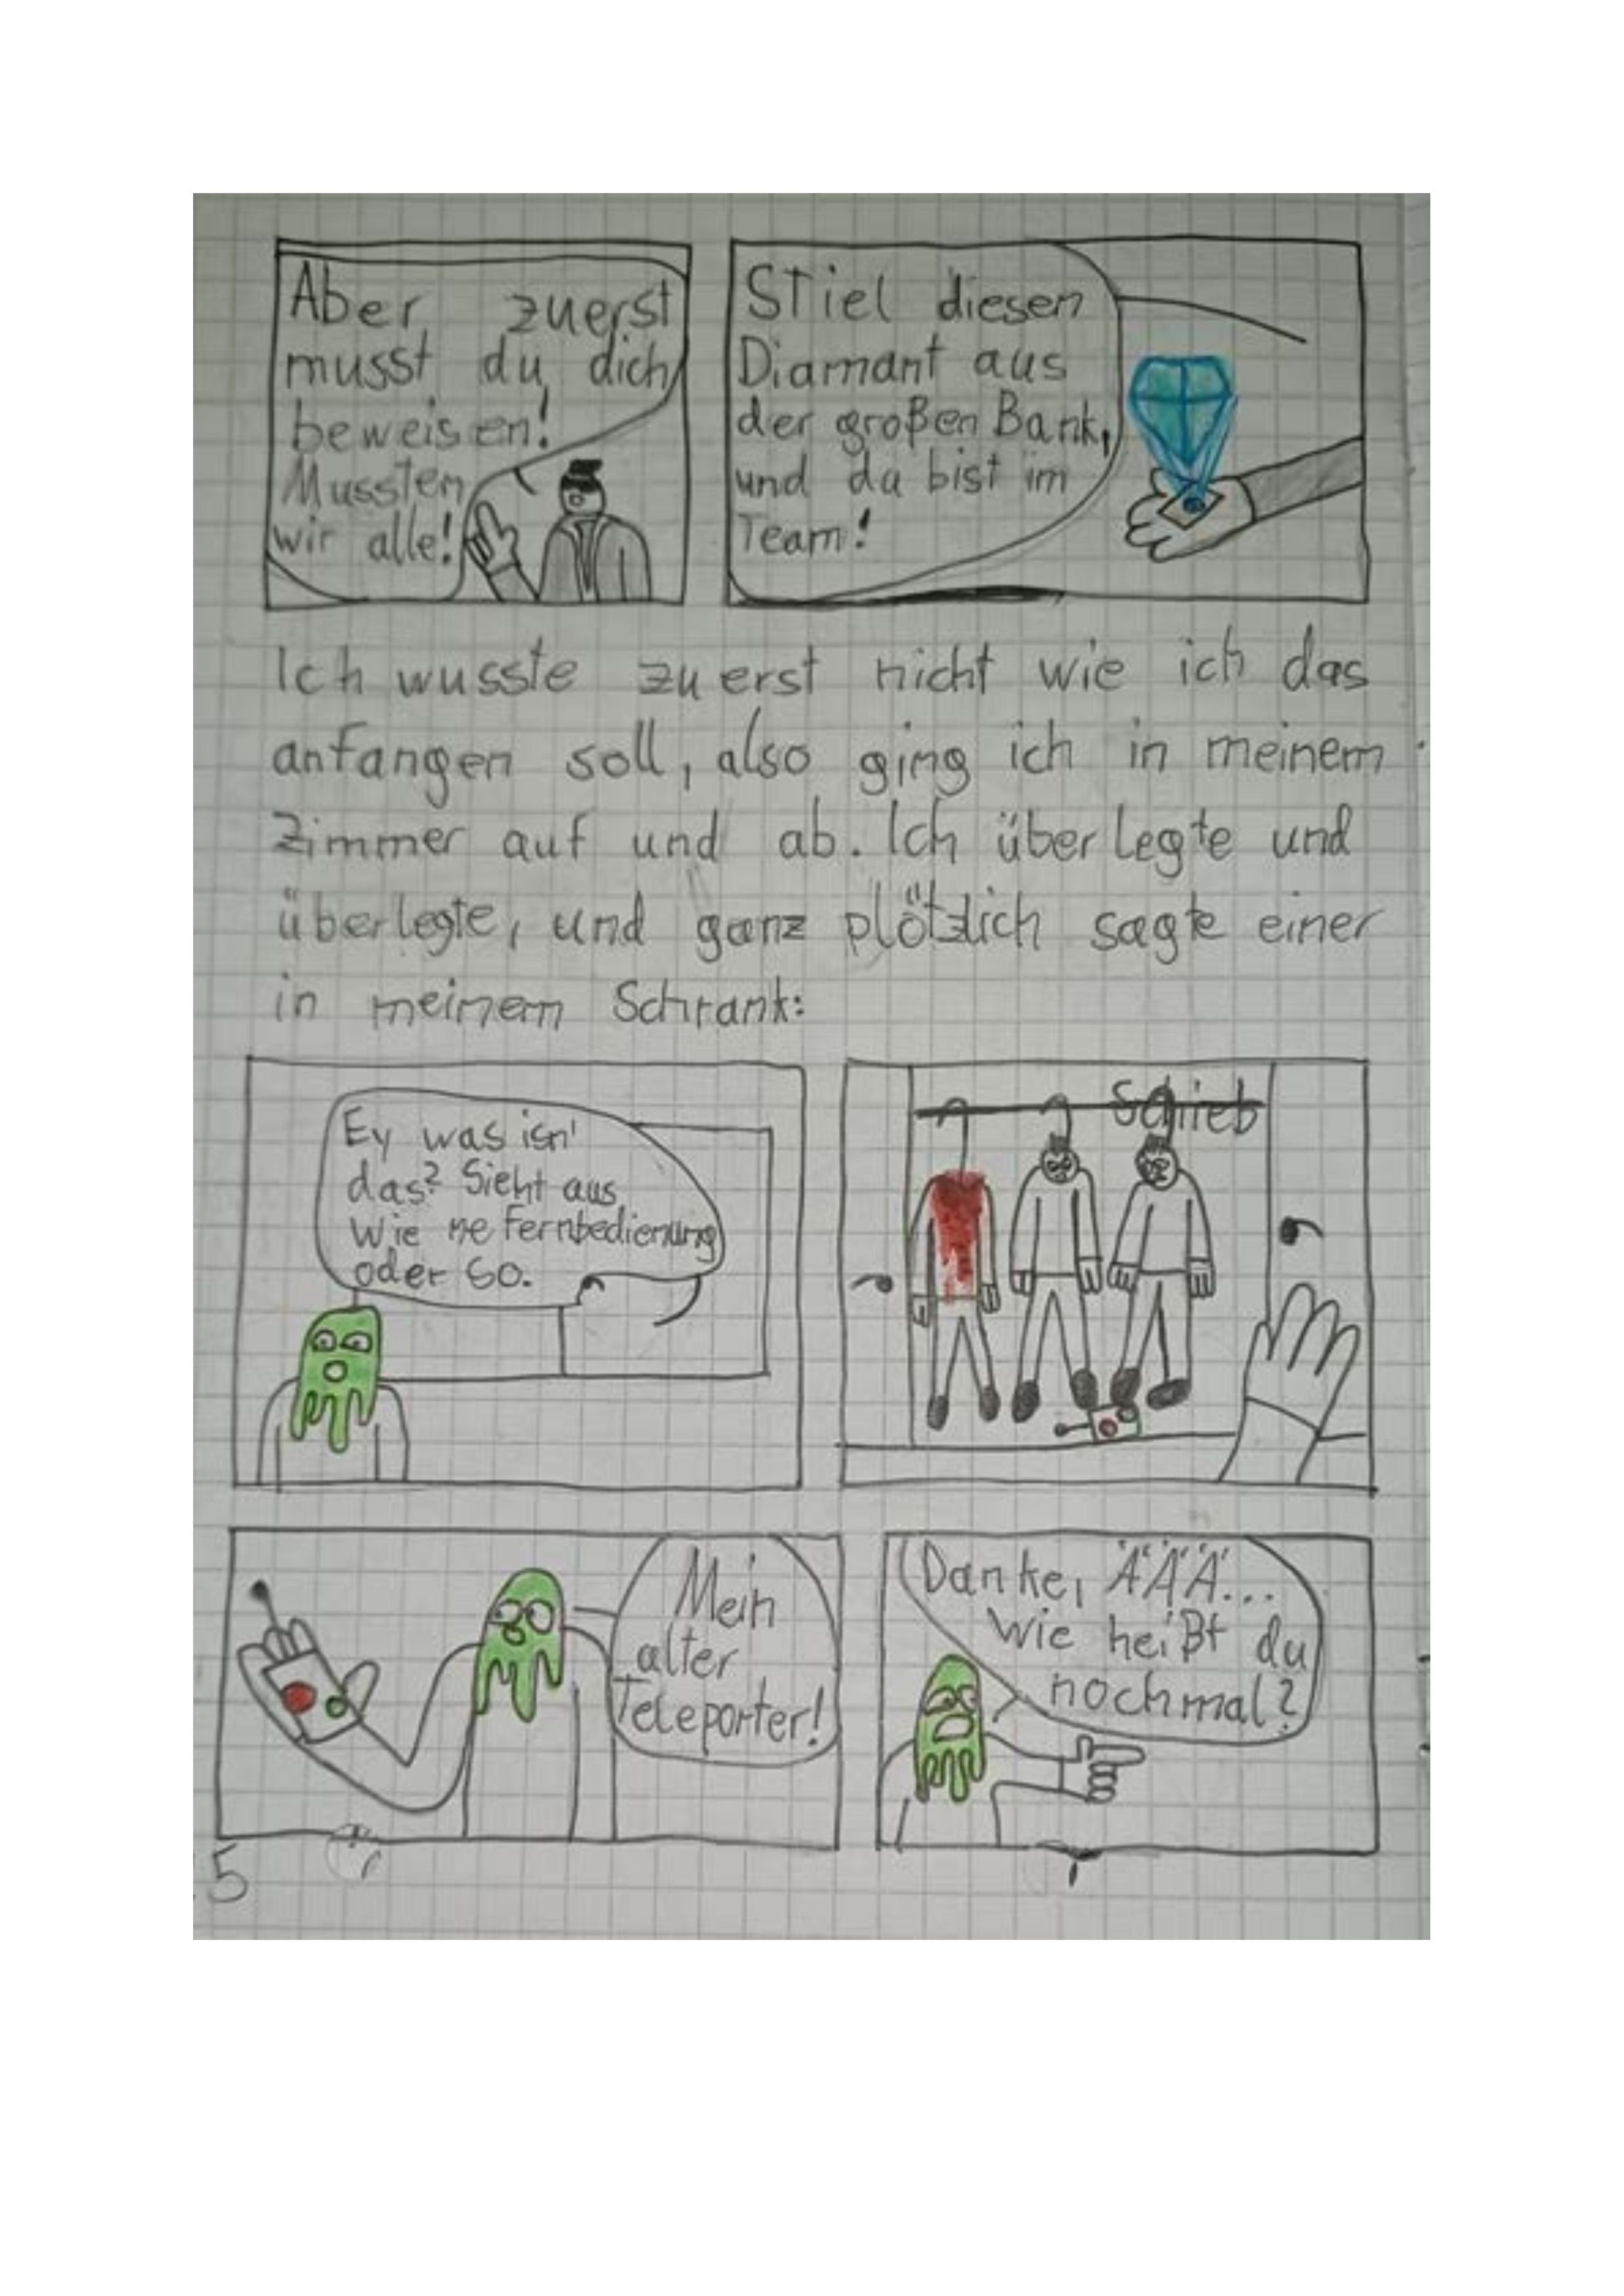 Aber zuerst
musst du dich
beweisen!
Mussten
wir alle!
Stiel diesen
Diamant aus
der großen Bank,
und da bist im
Team!
Ich wusste zuerst nicht wie ich das
anfangen soll, also ging ich in meinem
Zimmer auf und ab. Ich überlegte und
überlegte, und ganz plötzlich sagte einer
in meinem Schrank:
Ey was isn'
das? Sieht aus
wie ne Fernbedienung
oder so.
Schieb
Mein
alter
Teleporter!
Danke, ÄÄÄ...
Wie heißt du
nochmal?
5